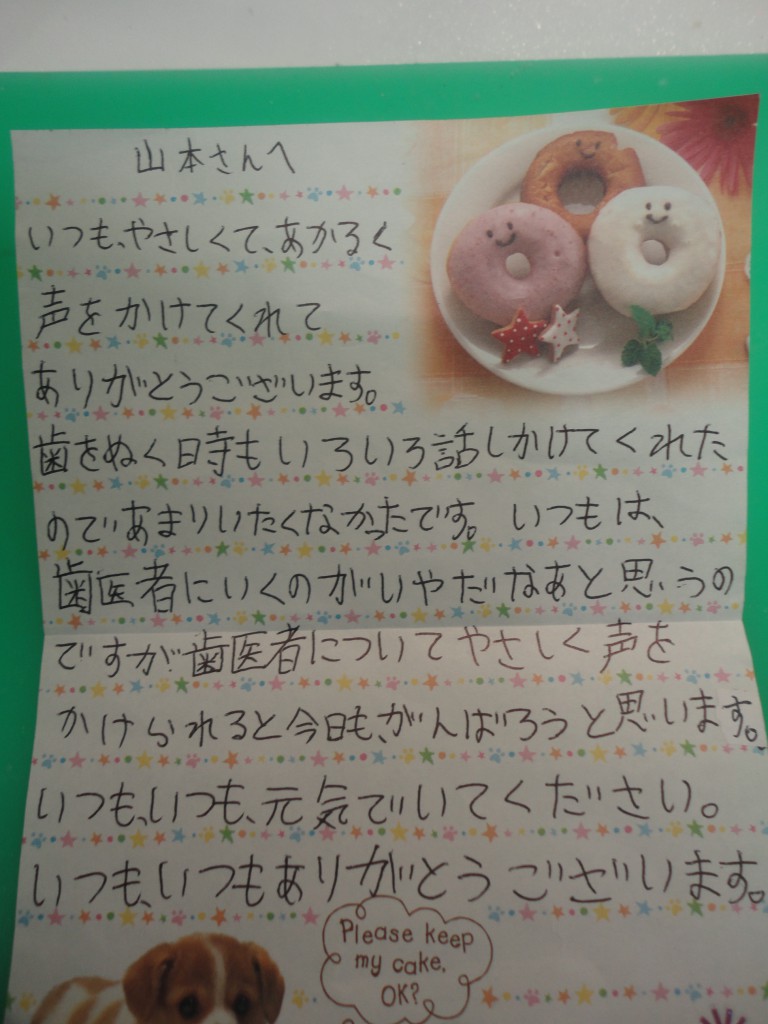 山本さんへ
いつも、やさしくて、あかるく
声をかけてくれて
ありがとうございます。
歯をぬく日寺もいろいろ話しかけてくれた
のであまりいたくなかったです。いつもは、
歯医者にいくのがいやだなあと思うの
ですが歯医者についてやさしく声を
かけられると今日も、がんばろうと思います。
いつも、いつも、元気でいてください。
いつも、いつもありがとうございます。
Please keep
my cake.
OK?